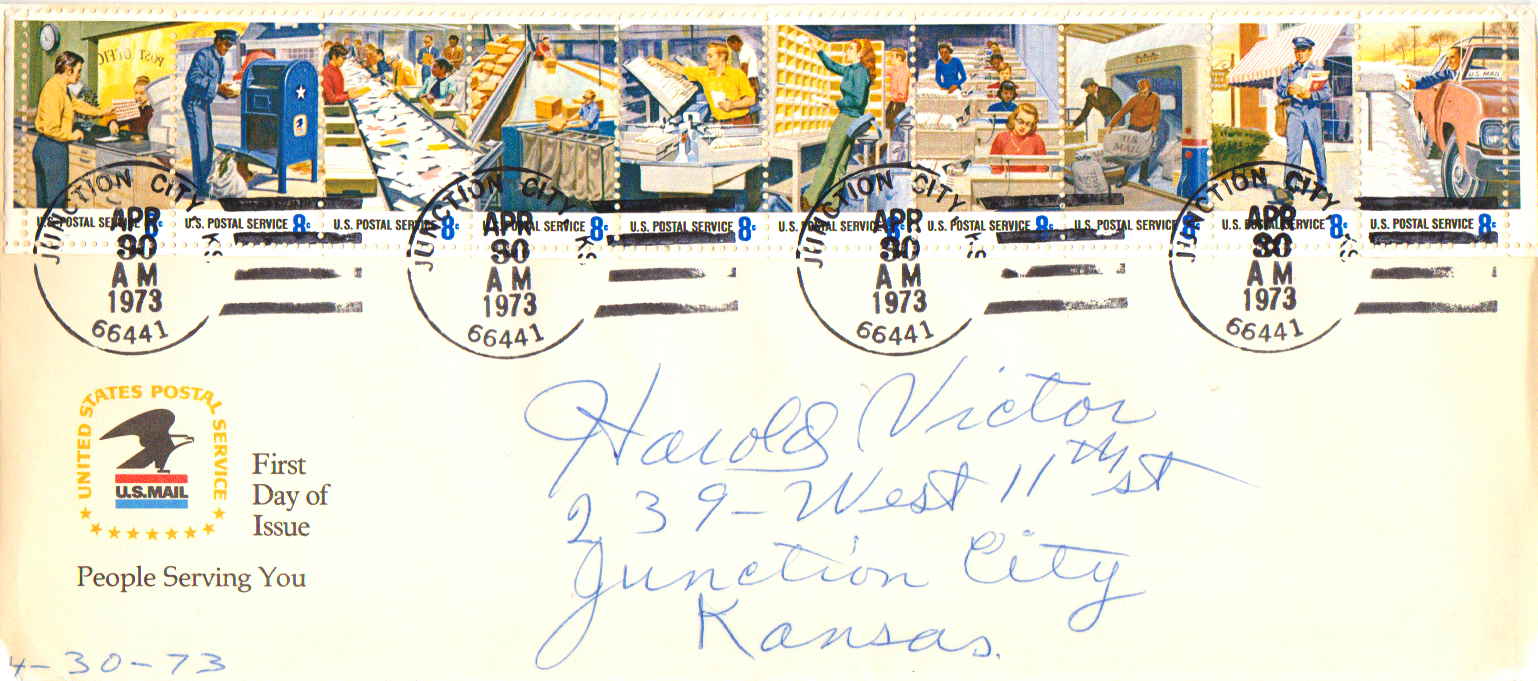 POST OFFIC
U.S. MAIL
U.S. MAIL
U.S. POSTAL SERVICE
U.S. POSTAL SERVICE 8c
U.S. POSTAL SERVICE 8c
U.S. POSTAL SERVICE 8c
U.S. POSTAL SERVICE 8c
U.S. POSTAL SERVICE 8c
U.S. POSTAL SERVICE 8c
U.S. POSTAL SERVICE 8c
U.S. POSTAL SERVICE 8c
U.S. POSTAL SERVICE 8c
JUNCTION CITY KS
APR
30
AM
1973
66441
JUNCTION CITY KS
APR
30
AM
1973
66441
JUNCTION CITY KS
APR
30
AM
1973
66441
JUNCTION CITY KS
APR
30
AM
1973
66441
UNITED STATES POSTAL SERVICE
U.S.MAIL
First
Day of
Issue
People Serving You
Harold Victor
239-West 11th st
Junction City
Kansas.
4-30-73